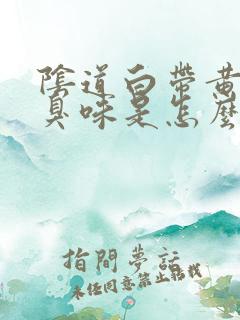 陰道白帶黃
臭味是怎麼
指間夢話
未經同意禁止轉載